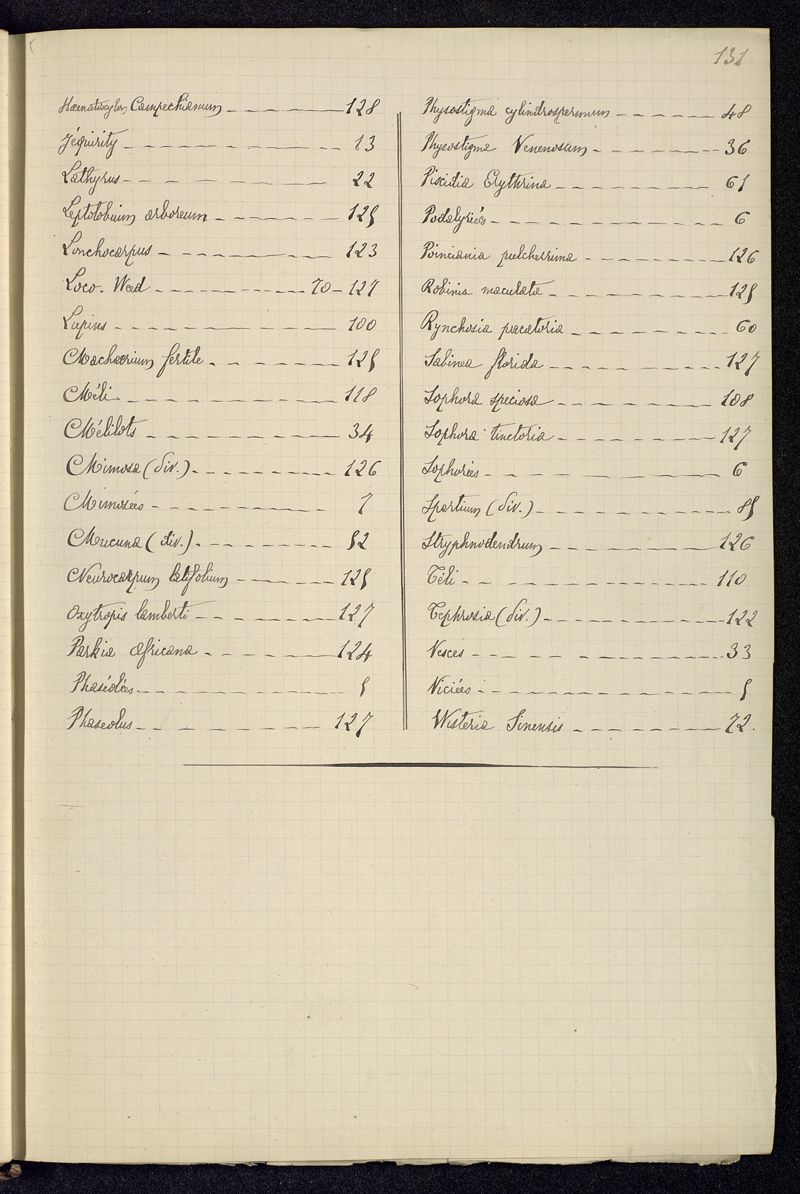 131
Hæmatoxylon Campechianum 128
Jéquirity 13
Lathyrus 22
Leptolobium arboreum 125
Lonchocarpus 123
Loco-Weed 70-127
Lupins 100
Machaerium fertile 125
Méli 118
Mélilots 34
Mimosa (div.) 126
Mimosées 7
Mucuna (div.) 52
Neurocarpum latifolium 125
Oxytropis lamberti 127
Parkia africana 124
Phaséolées 5
Phaseolus 127
Physostigma cylindrospermum 48
Physostigma Venenosum 36
Piscidia Erythrina 61
Podalyriées 6
Poinciania pulcherrima 126
Robinia maculata 125
Rynchosia precatoria 60
Sabinea florida 127
Sophora speciosa 108
Sophora tinctoria 127
Sophorées 6
Spartium (div.) 85
Stryphnodendrum 126
Téli 110
Tephrosia (div.) 122
Vesces 33
Viciées 5
Wisteria Sinensis 72.